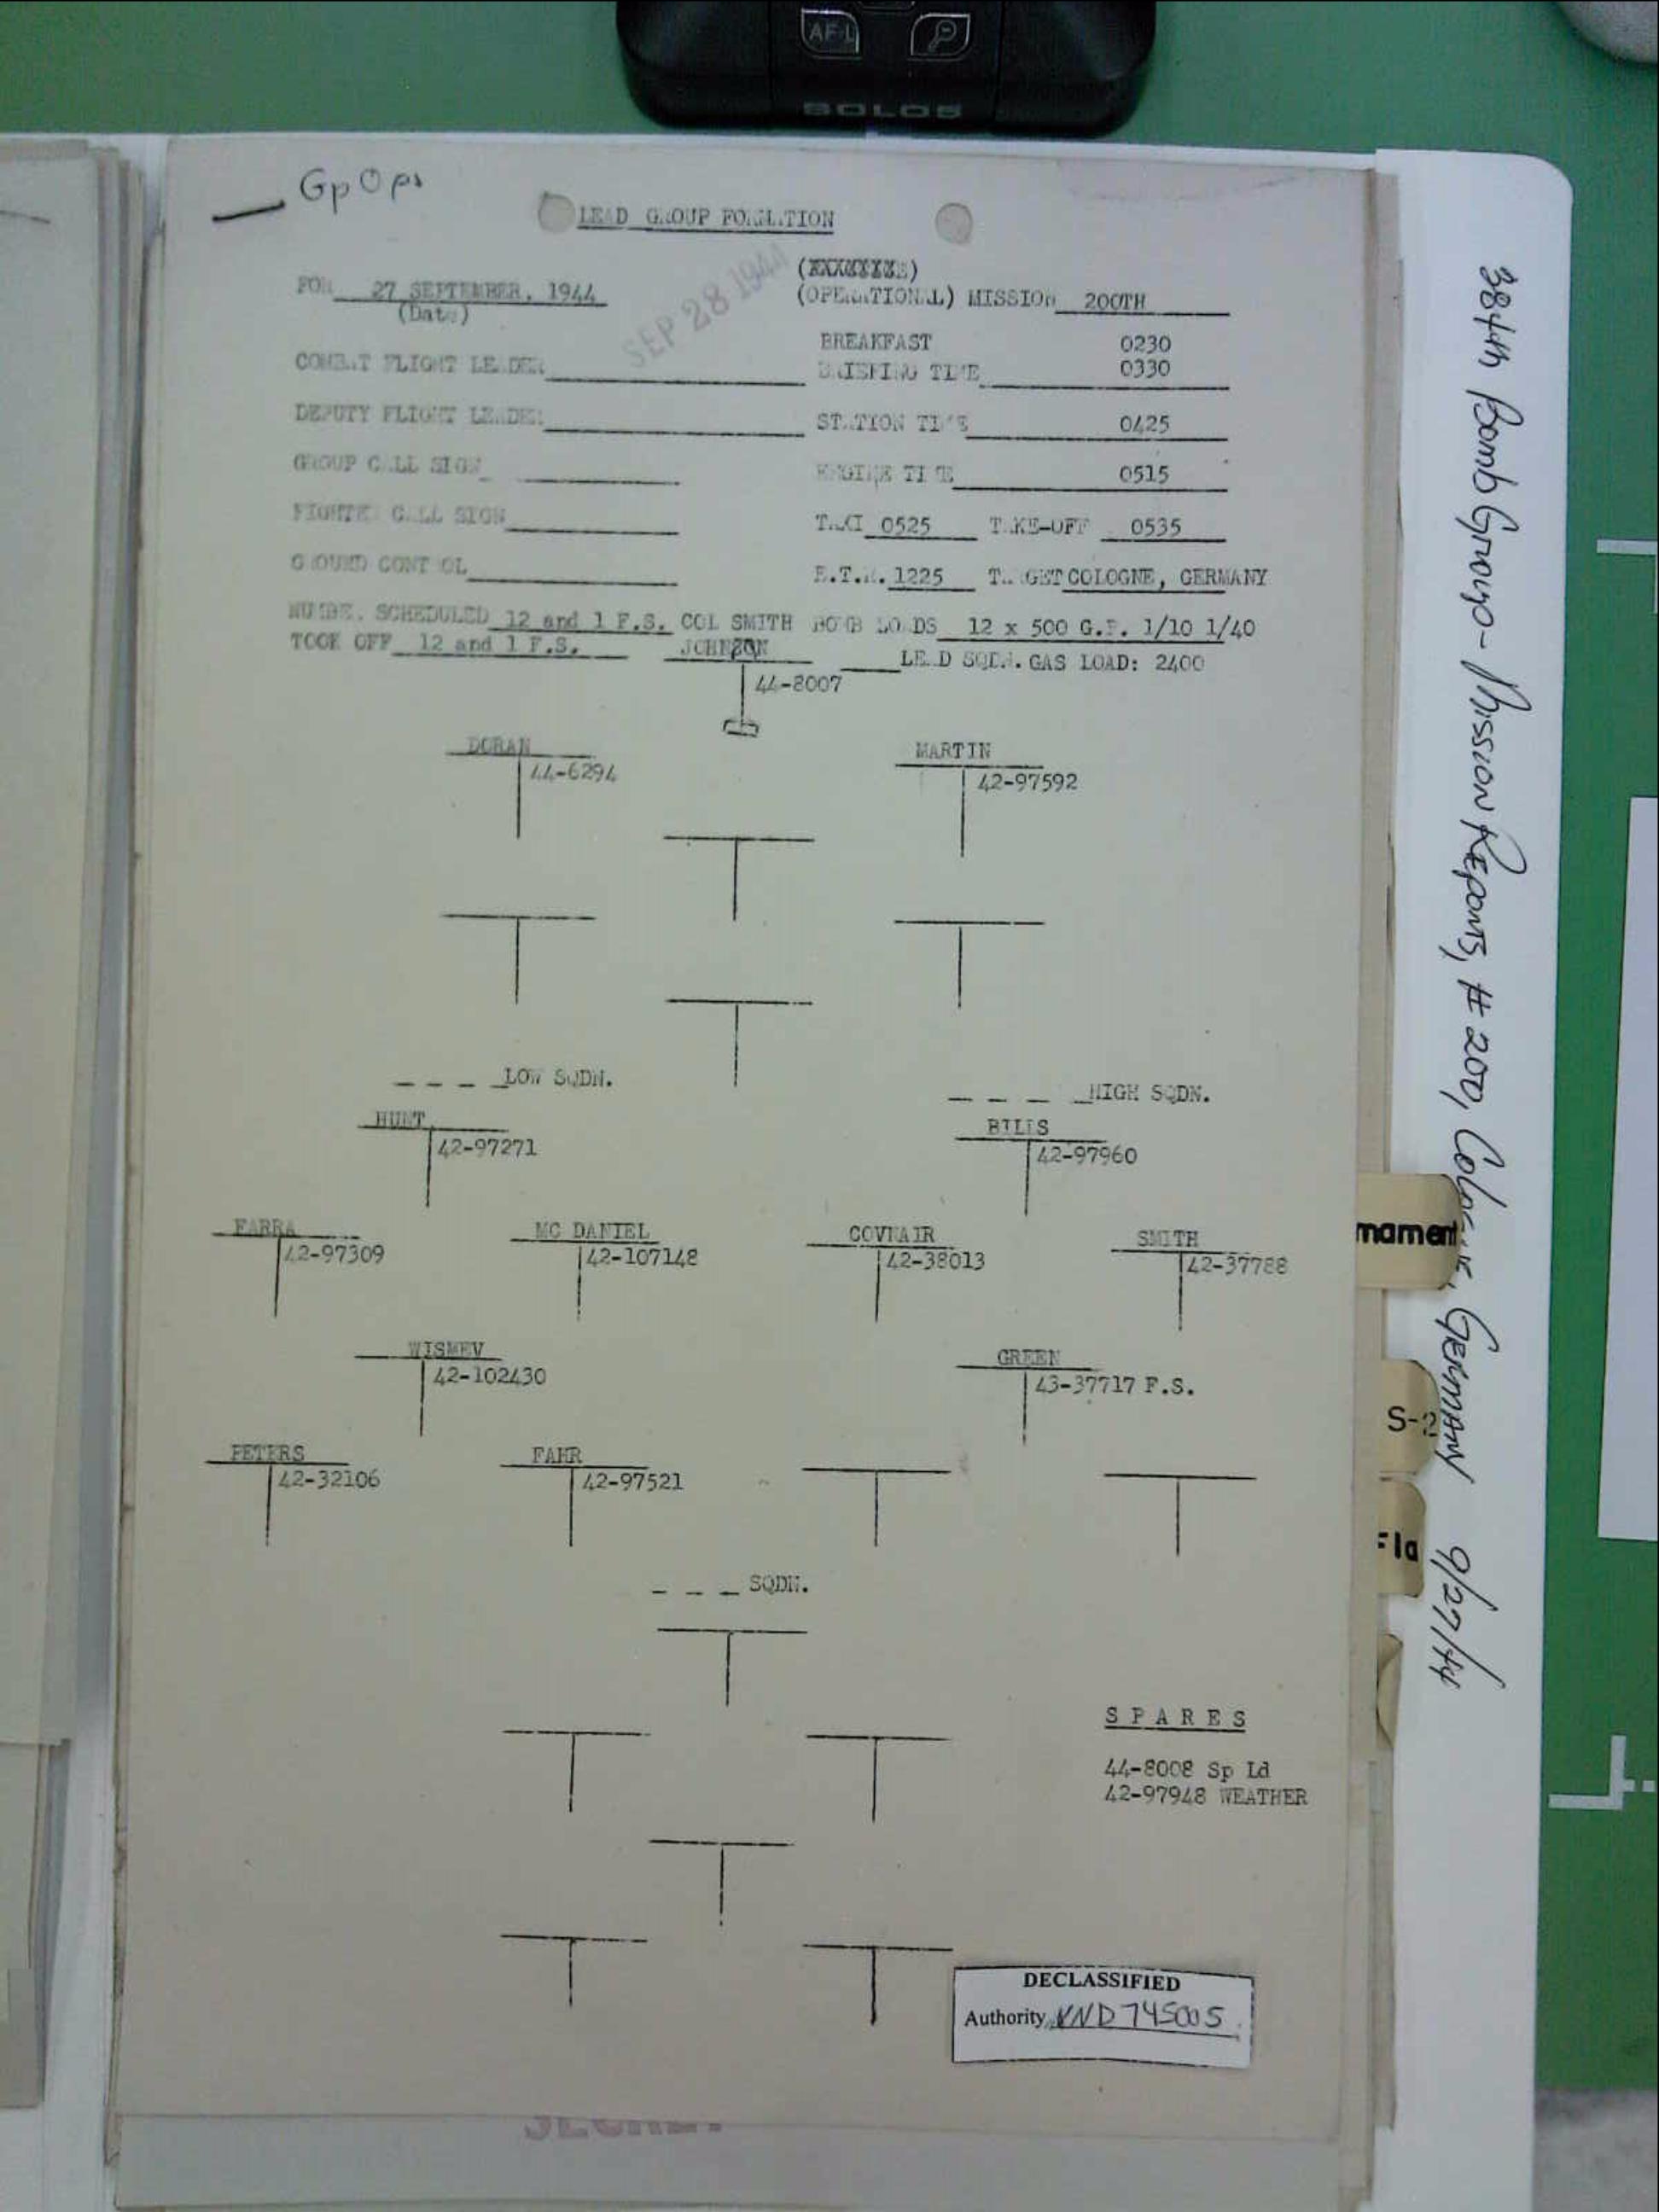 AF-L
SOLO5
Gp Ops
LEAD GROUP FORMATION
SEP 28 1944
FOR 27 SEPTEMBER, 1944
(Date)
(OPERATIONAL) MISSION 200TH
BREAKFAST 0230
COMBAT FLIGHT LEADER
BRIEFING TIME 0330
DEPUTY FLIGHT LEADER
STATION TIME 0425
GROUP CALL SIGN
ENGINE TIME 0515
FIGHTER CALL SIGN
TAXI 0525 TAKE-OFF 0535
GROUND CONTROL
E.T.R. 1225 TARGET COLOGNE, GERMANY
NUMBER SCHEDULED 12 and 1 F.S. COL SMITH BOMB LOADS 12 x 500 G.P. 1/10 1/40
TOOK OFF 12 and 1 F.S. JOHNSON LEAD SQDN. GAS LOAD: 2400
44-8007
DORAN
44-6294
MARTIN
42-97592
LOW SQDN.
HIGH SQDN.
HUNT
42-97271
BILLS
42-97960
FARRA
42-97309
MC DANIEL
42-107148
COVNAIR
42-38013
SMITH
42-37788
WISMEV
42-102430
GREEN
43-37717 F.S.
PETERS
42-32106
FAHR
42-97521
SQDN.
SPARES
44-8008 Sp Ld
42-97948 WEATHER
DECLASSIFIED
Authority NND 745005
SECRET
384th Bomb Group - Mission Reports, # 200, Cologne, GERMANY 9/27/44
mament
S-2
Fla